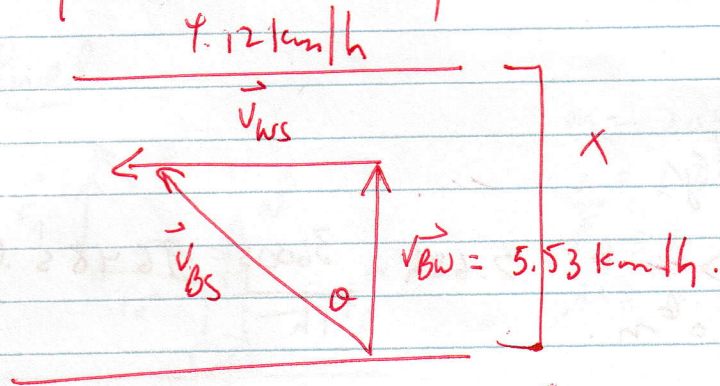 4.12 km/h
v⃗ws
x
v⃗BS
θ
v⃗BW = 5.53 km/h.